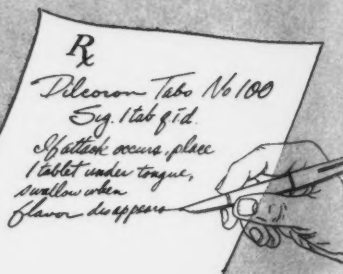 Rx
Dilcoron Tabs No 100
Sig. 1 tab q i d.
If attack occurs, place
1 tablet under tongue,
swallow when
flavor disappears